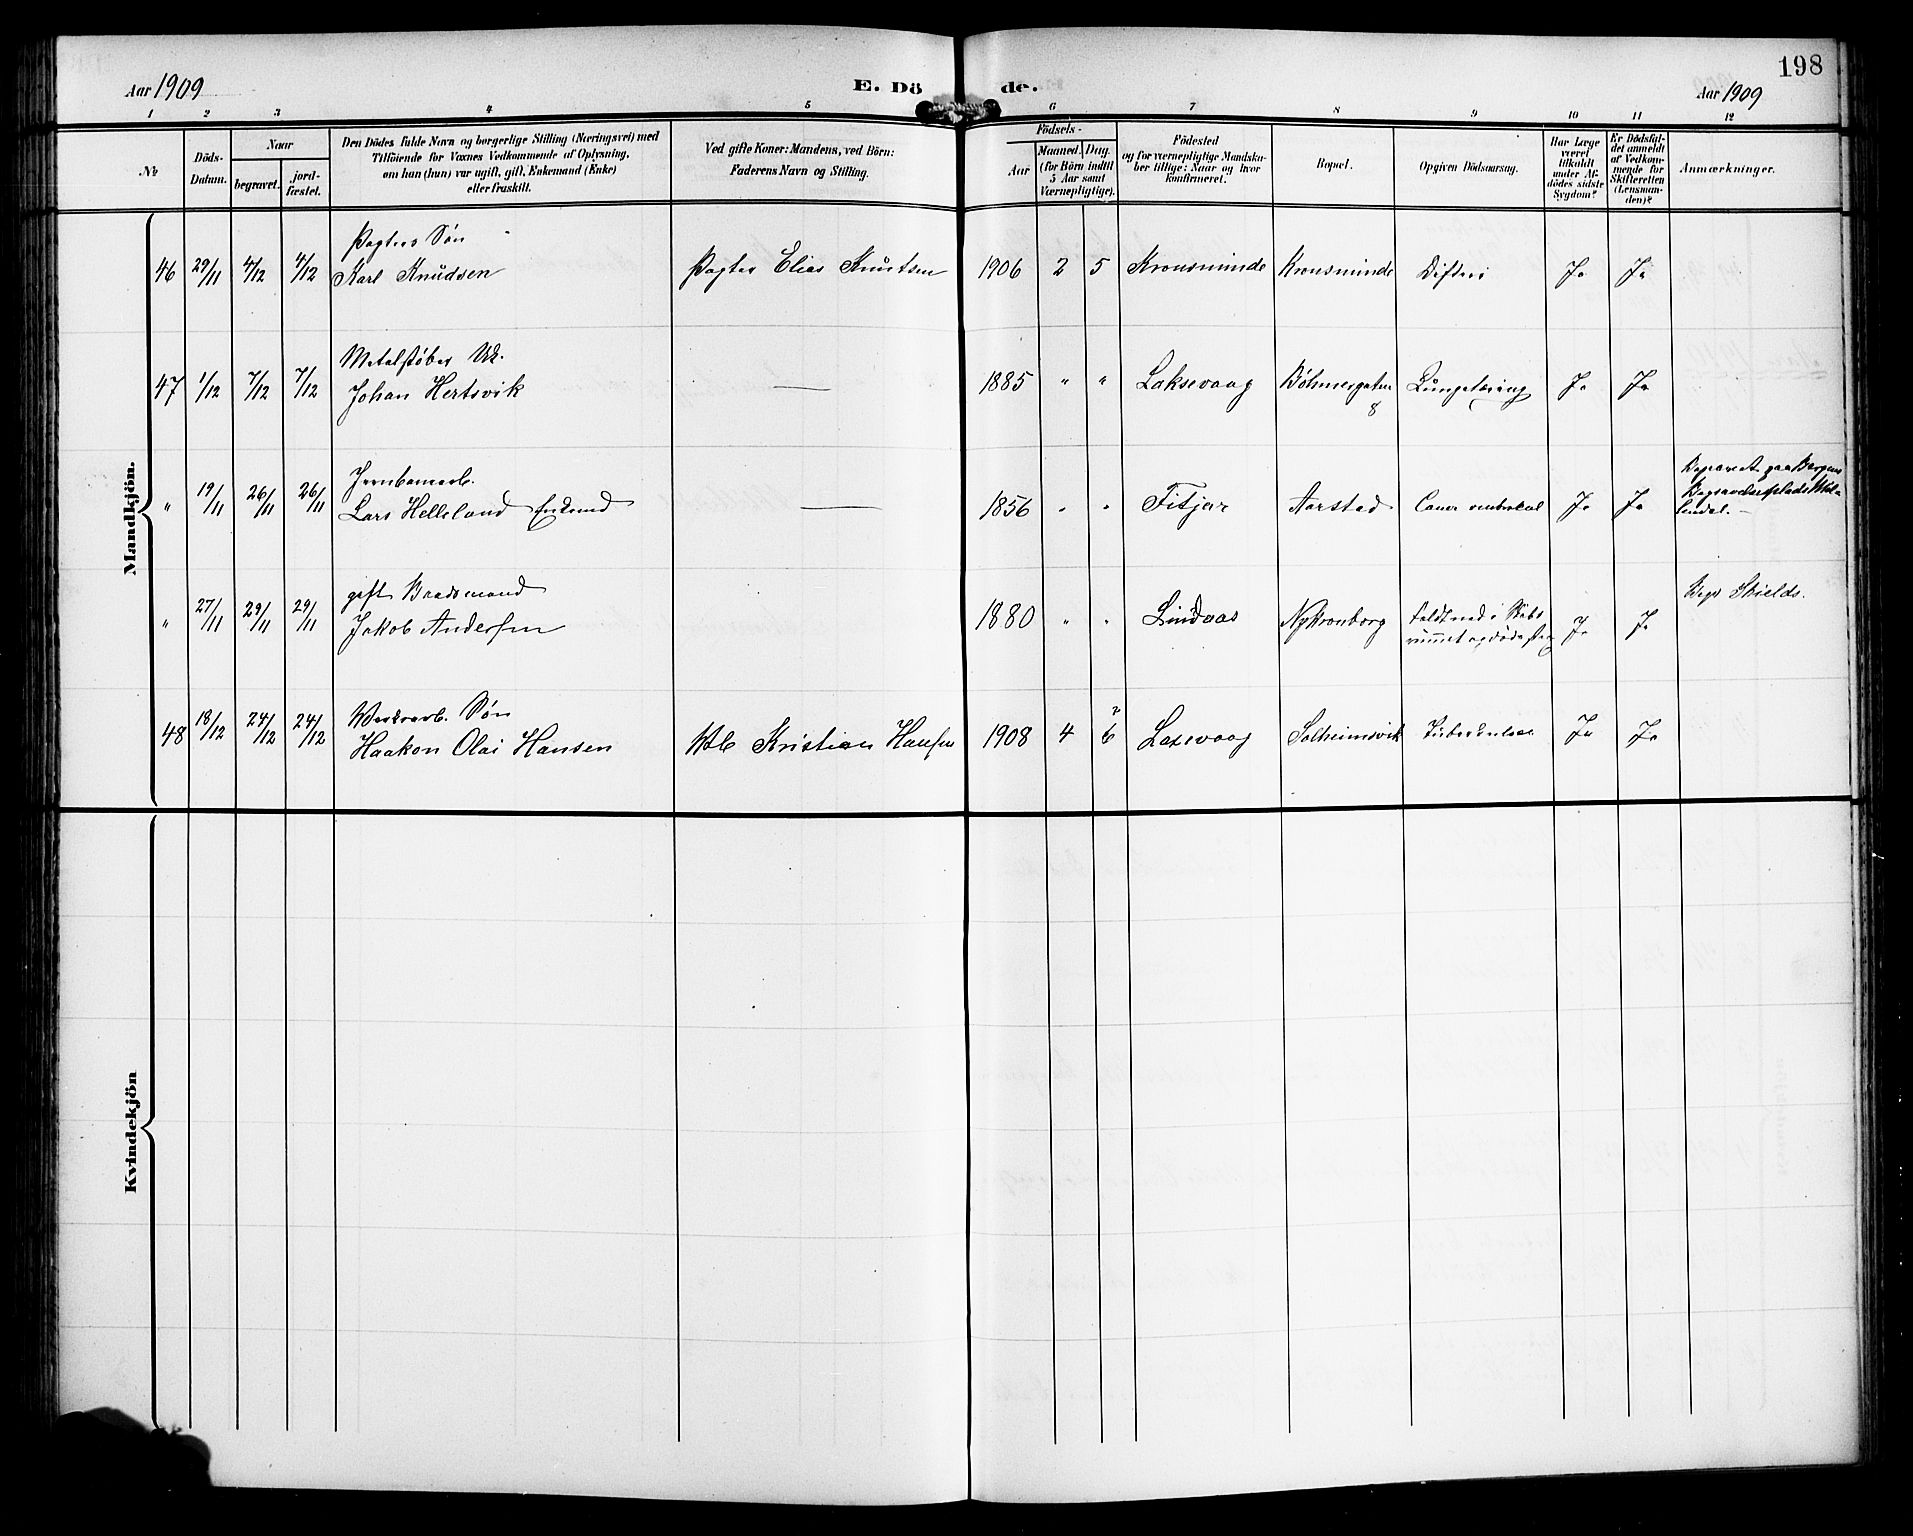 198
Aar 1909
E. Dö
de.
Aar 1909
1 2 3 4 5 6 7 8 9 10 11 12
№
Döds-
Datum.
Naar
begravet.
jord-
fæstet.
Den Dödes fulde Navn og borgerlige Stilling (Næringsvei) med
Tilföiende for Voxnes Vedkommende af Oplysning,
om han (hun) var ugift, gift, Enkemand (Enke)
eller fraskilt.
Ved gifte Koner: Mandens, ved Börn:
Faderens Navn og Stilling.
Födsels-
Aar
Maaned. Dag.
(for Börn indtil
5 Aar samt
Værnepligtige).
Födested
og for værnepligtige Mandska-
ber tillige: Naar og hvor
konfirmeret.
Bopæl.
Opgiven Dödsaarsag.
Har Læge
været
tilkaldt
under Af-
dödes sidste
Sygdom?
Er Dödsfal-
det anmeldt
af Vedkom-
mende for
Skifteretten
(Lensman-
den)?
Anmærkninger.
Mandkjön.
Pagters Søn
46 29/11 4/12 4/12 Karl Knudsen Pagter Elias Knutsen 1906 2 5 Kronsminde Kronsminde Difteri Ja Ja
Metalstøber Uk.
47 1/12 7/12 7/12 Johan Hertsvik — 1885 " " Laksevaag Bøhmergaten Lungetæring Ja Ja
8
Jernbanearb.
" 19/11 26/11 26/11 Lars Helleland Enkemd — 1856 " " Fitjar Aarstad Ja Ja
gift Baadsmand
" 27/11 29/11 29/11 Jakob Andersen 1880 " " Lindaas Ny Kronborg Faldt ned i Skibs
rummet og døde Ja Ja
Begr Shields.
Søn
48 18/12 24/12 24/12 Haakon Olai Hansen Kristian Hansen 1908 4 6 Laxevaag Solheimsvik Tuberkulose Ja Ja
Kvindekjön